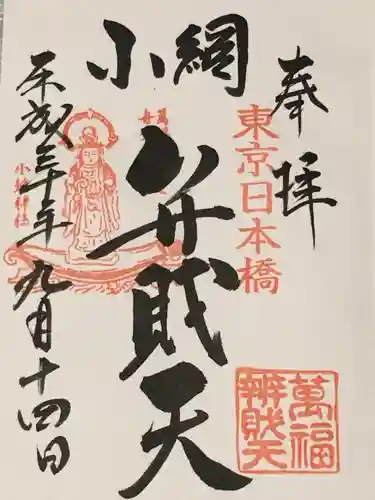 奉拝
東京日本橋
萬福
辨財天
小網
弁財天
小網神社
平成三十年九月十四日